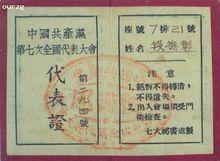 our.zg
中國共產黨
第七次全國代表大會
代表證
第二九四號
座號7排21號
姓名
注意
1.絕對不得轉借，
不得遺失。
2.出入會場須受門
衛檢查。
七大祕書處製